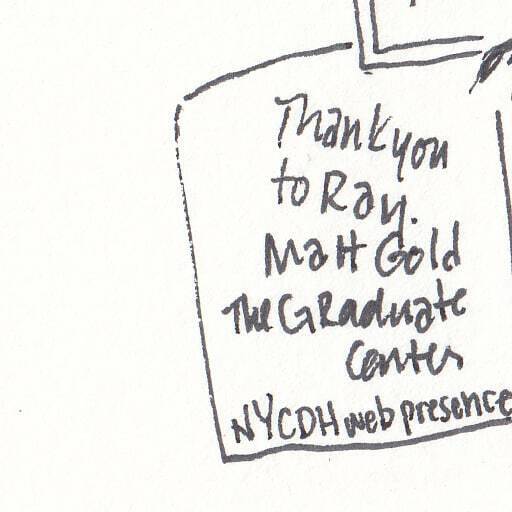 Thank you
to Ray.
Matt Gold
The GRaduate
Center
NYCDH web presence